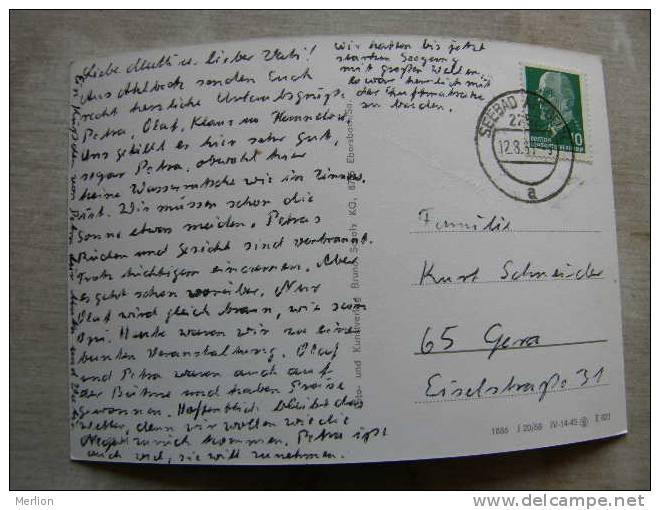 Liebe Mutti u. lieber Vati!
Aus Ahlbeck senden Euch
recht herzliche Urlaubsgrüße
Petra, Olaf, Klaus u. Hannelore.
Uns gefällt es hier sehr gut,
sogar Petra, obwohl hier
keine Wasserratsche wie in Zinnow.
ist. Wir müssen schon die
Sonne etwas meiden. Petras
Rücken und Gesicht sind verbrannt.
Trotz tüchtigem eincremen. Aber
es geht schon vorüber. Nur
Olaf wird gleich braun, wie sein
Opi. Heute waren wir zu einer
bunten Veranstaltung. Olaf
und Petra waren auch auf
der Bühne und haben Preise
gewonnen. Hoffentlich bleibt das
Wetter, denn wir wollen wie die
Neger zurück kommen. Petra ißt
auch viel, sie will zunehmen.
Wir hatten bis jetzt
starken Seegang
mit großen Wellen,
es war herrlich mit
der Luftmatratze
zu baden.
SEEBAD
12.8.
a
10
Familie
Kurt Schneider
65 Gera
Eiselstraße 31
Foto- und Kunstverlag Bruno Scholz KG, Ebersbach
1886 J 20/68 IV-14-45 E 621
Merlion
http://www.delcampe.net